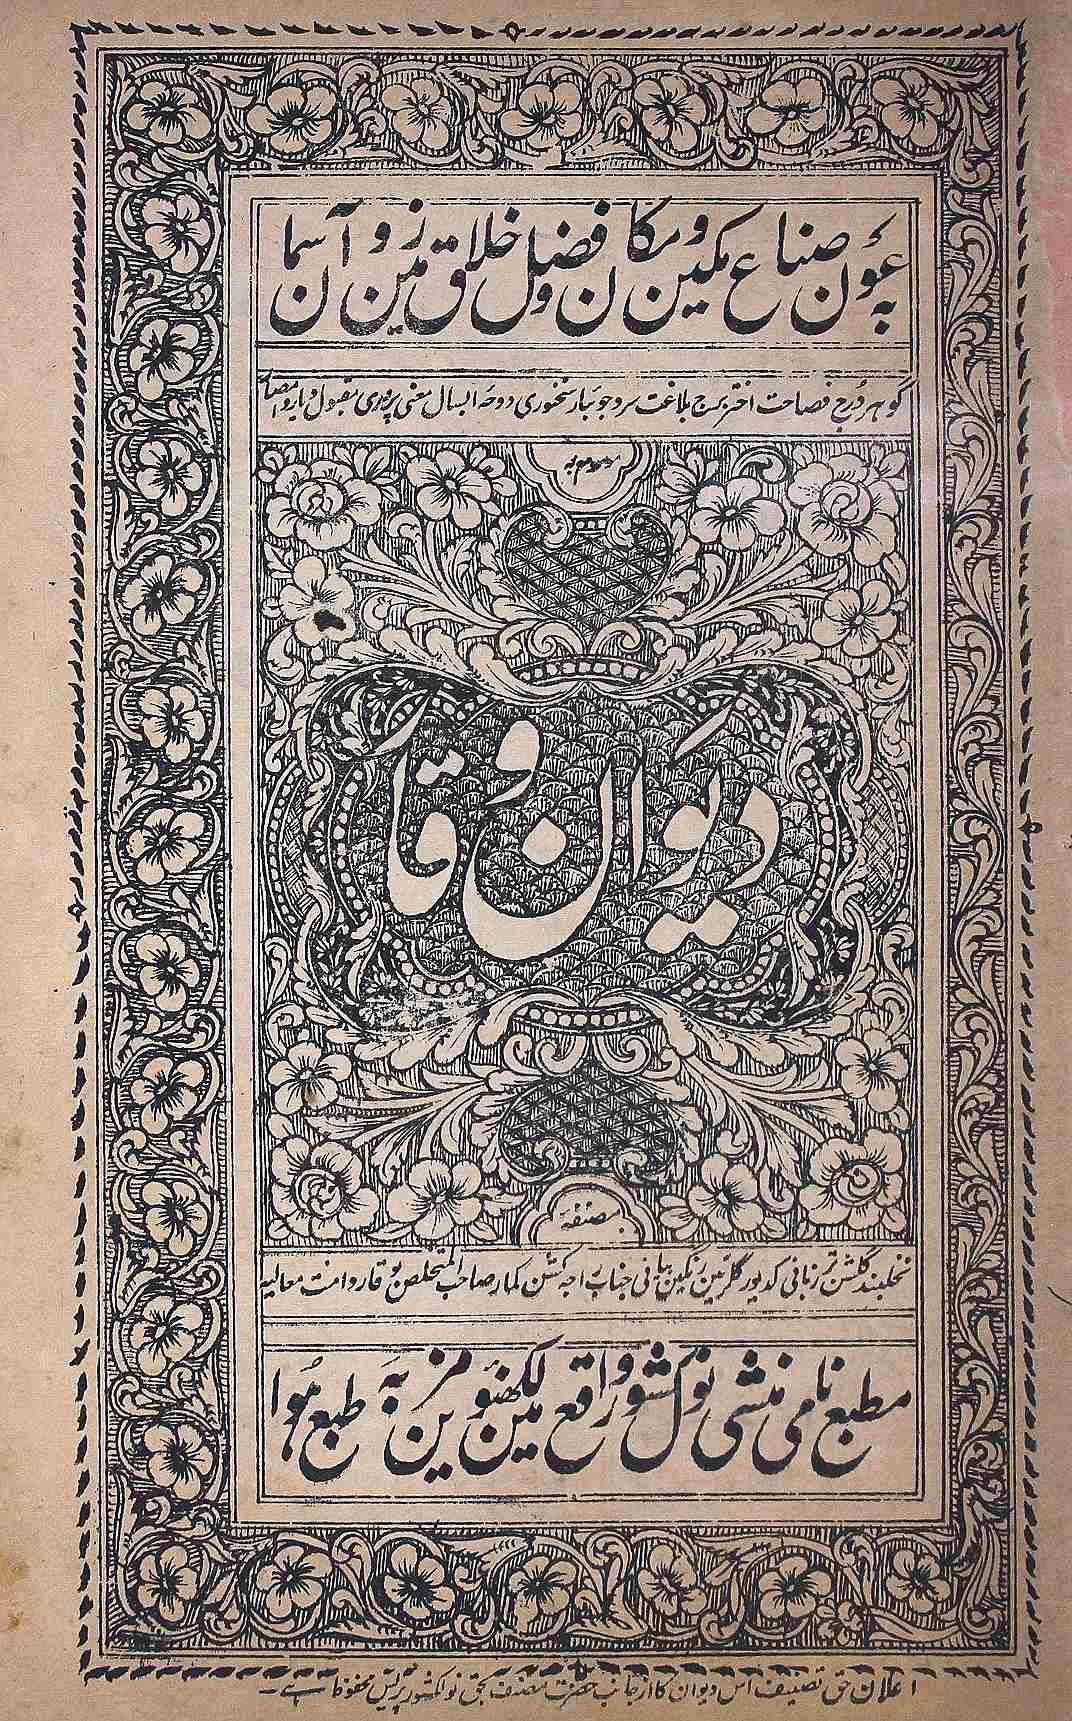 بہ عون صناع مکین و مکان و فضل خلاق زمین و آسمان
گوہر درج فصاحت اختر برج بلاغت سرو جوئبار سخنوری دوحہ ابسال معنی پروری مقبول دیار و امصار
موسوم بہ
دیوان وقار
مصنفہ
نخلبند گلشن تر زبانی کدیور گلزمین رنگین بیانی جناب راجہ کشن کمار صاحب المتخلص بوقار دامت معالیہ
مطبع نامی منشی نولکشور واقع لکھنؤ میں مزین بہ طبع ہوا
اعلان حق تصنیف اس دیوان کا از جانب حضرت مصنف بحق نولکشور پریس محفوظ ہے۔